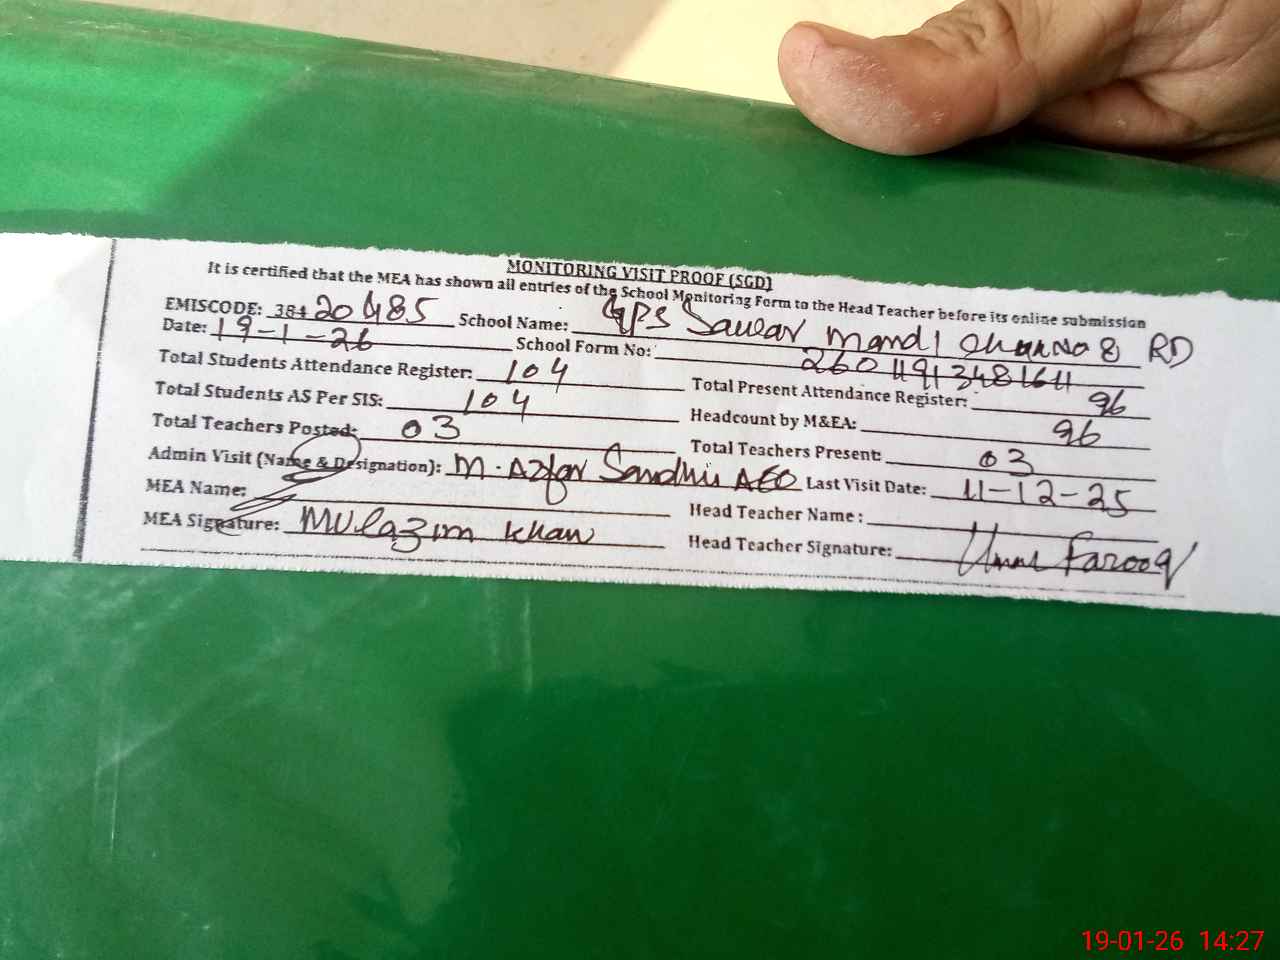 MONITORING VISIT PROOF (SGD)
It is certified that the MEA has shown all entries of the School Monitoring Form to the Head Teacher before its online submission
EMISCODE: 38420485 School Name: GPS Sawar Mandi Chak No 8 RD
Date: 19-1-26 School Form No: 2601191348164
Total Students Attendance Register: 104 Total Present Attendance Register: 96
Total Students AS Per SIS: 104 Headcount by M&EA: 96
Total Teachers Posted: 03 Total Teachers Present: 03
Admin Visit (Name & Designation): M. Azfar Sandhu AEO Last Visit Date: 11-12-25
MEA Name: Head Teacher Name :
MEA Signature: Mulazim Khan Head Teacher Signature: Umar Farooq
19-01-26 14:27